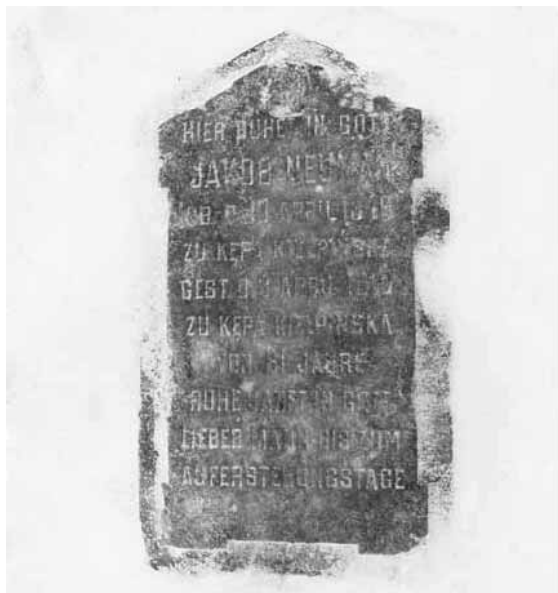 HIER RUHET IN GOTT
JAKOB NEUMANN
GEB. D. APRIL
ZU KEPA KIELPINSKA
GEST. D. APRIL
ZU KEPA KIELPINSKA
JAHRE
RUHE SANFT IN GOTT
LIEBER MANN BIS ZUM
AUFERSTEHUNGSTAGE